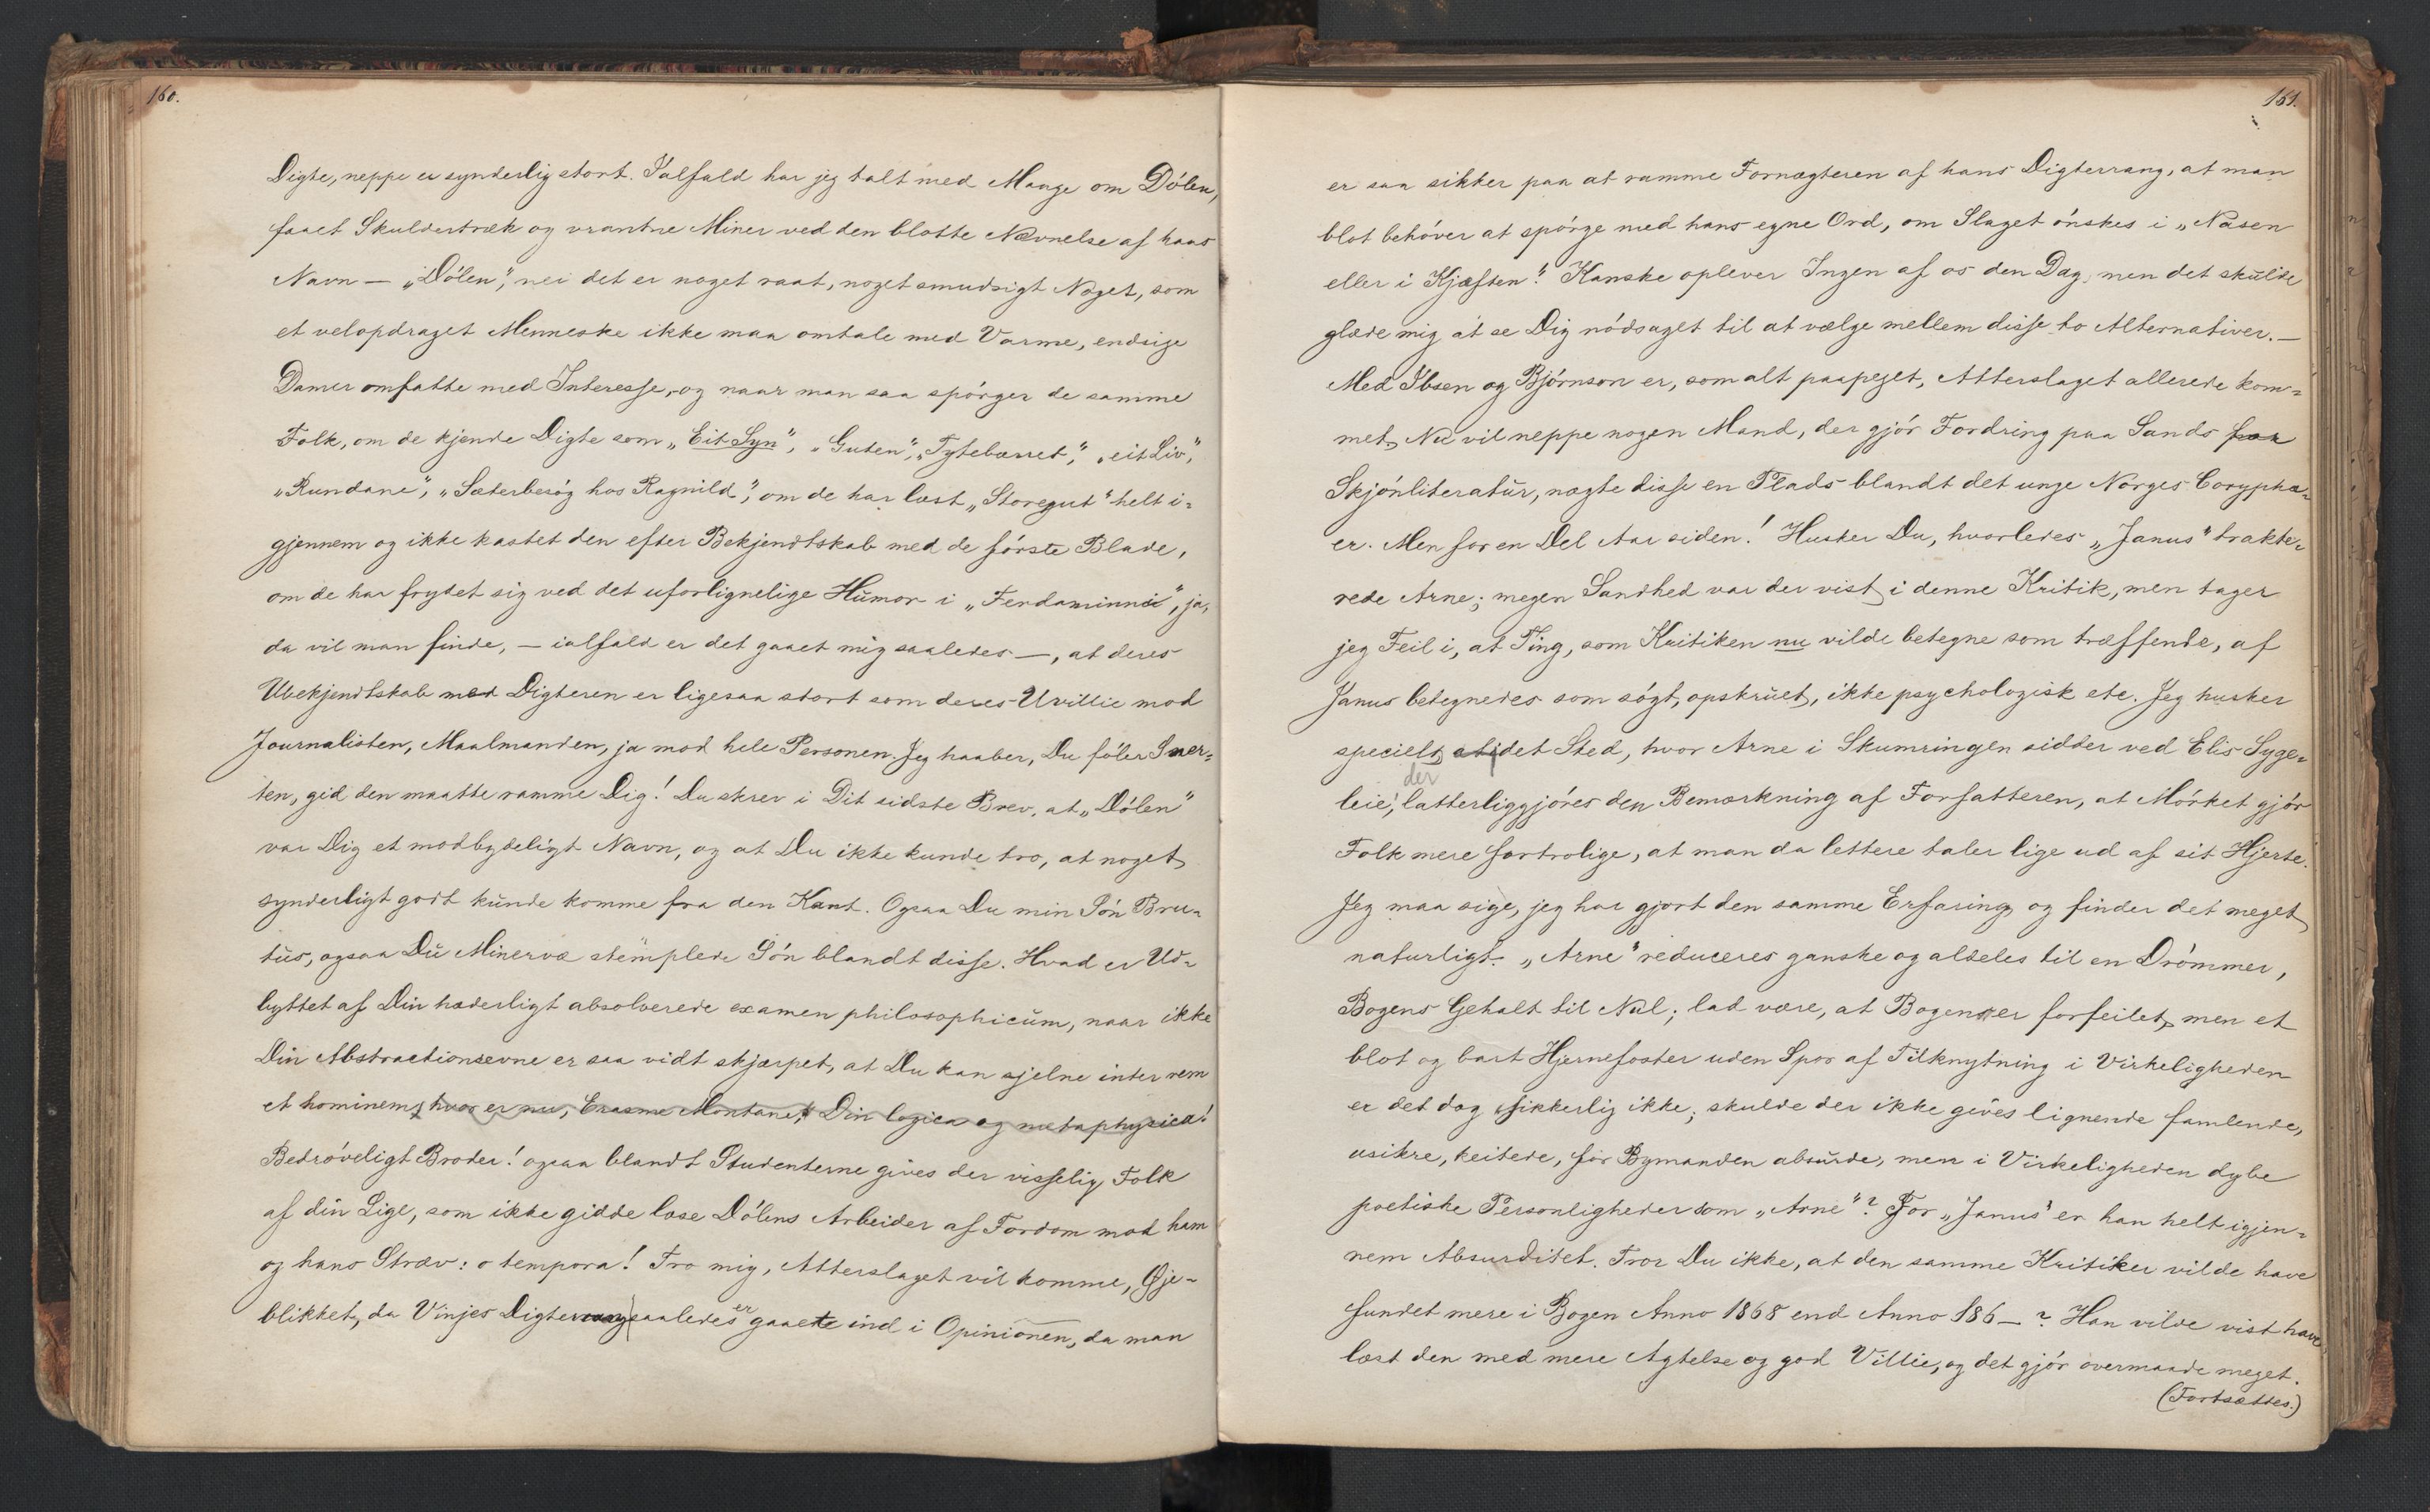 160.
Digte, neppe er synderlig stort. Ialfald har jeg talt med Mange om Dólen,
faaet Skuldertræk og vrantne Miner ved den blotte Nævnelse af hans
Navn — „Dólen“, nei det er noget raat, noget smudsigt Noget, som
et velopdraget Menneske ikke maa omtale med Varme, endsige
Damer omfatte med Interesse, og naar man saa spórger de samme
Folk, om de kjende Digte som „Eit Syn“, „Guten“, „Tytebærret“, „eit Liv“,
„Rundane“, „Sæterbesóg hos Ragnild“, om de har læst „Storegut“ helt i-
gjennem og ikke kastet den efter Bekjendtskab med de fórste Blade,
om de har frydet sig ved det uforlignelige Humor i „Ferdaminni“, ja,
da vil man finde, — ialfald er det gaaet mig saaledes —, at deres
Ubekjendtskab med Digteren er ligesaa stort som deres Uvillie mod
Journalisten, Maalmanden, ja mod hele Personen. Jeg haaber, Du fóler Sner-
ten, gid den maatte ramme Dig! Du skrev i Dit sidste Brev, at „Dólen“
var Dig et modbydeligt Navn, og at Du ikke kunde tro, at noget
synderligt godt kunde komme fra den Kant. Ogsaa Du min Són Bru-
tus, ogsaa Du Minervæ stemplede Són blandt disse. Hvad er Ud-
byttet af Din hæderligt absolverede examen philosophicum, naar ikke
Din Abstractionsevne er saa vidt skjærpet, at Du kan sjelne inter rem
et hominem, hvor er nu, Erasme Montane, Din logica og metaphysica!
Bedróveligt Broder! ogsaa blandt Studenterne gives der visselig Folk
af din Lige, som ikke gidde læse Dólens Arbeider af Fordom mod ham
og hans Stræv: o tempora! Tro mig, Atterslaget vil komme, Øje-
blikket, da Vinjes Digterrang saaledes er gaaet ind i Opinionen, da man
161.
er saa sikker paa at ramme Fornægteren af hans Digterrang, at man
blot behóver at spórge med hans egne Ord, om Slaget ónskes i „Nasen
eller i Kjæften“. Kanske oplever Ingen af os den Dag, men det skulde
glæde mig at se Dig nódsaget til at vælge mellem disse to Alternativer. —
Med Ibsen og Bjórnson er, som alt paapeget, Atterslaget allerede kom-
met. Nu vil neppe nogen Mand, der gjór Fordring paa Sands for
Skjónliteratur, nægte disse en Plads blandt det unge Norges Coryphæ-
er. Men for en Del Aar siden! Husker Du, hvorledes „Janus“ trakte-
rede Arne; megen Sandhed var der vist i denne Kritik, men tager
jeg Feil i, at Ting, som Kritiken nu vilde betegne som træffende, af
Janus betegnedes som sógt, opskruet, ikke psychologisk etc. Jeg husker
specielt, at det Sted, hvor Arne i Skumringen sidder ved Elis Syge-
der
leie, latterliggjóres den Bemærkning af Forfatteren, at Mórket gjór
Folk mere fortrolige, at man da lettere taler lige ud af sit Hjerte.
Jeg maa sige, jeg har gjort den samme Erfaring og finder det meget
naturligt. „Arne“ reduceres ganske og aldeles til en Drómmer,
Bogens Gehalt til Nul; lad være, at Bogen er forfeilet, men et
blot og bart Hjernefoster uden Spor af Tilknytning i Virkeligheden
er det dog sikkerlig ikke; skulde der ikke gives lignende famlende,
usikre, keitede, for Bymanden absurde, men i Virkeligheden dybe
poetiske Personligheder som „Arne“? For „Janus“ er han helt igjen-
nem Absurditet. Tror Du ikke, at den samme Kritiker vilde have
fundet mere i Bogen Anno 1868 end Anno 186—? Han vilde vist have
læst den med mere Agtelse og god Villie, og det gjór overmaade meget.
(Fortsættes.)